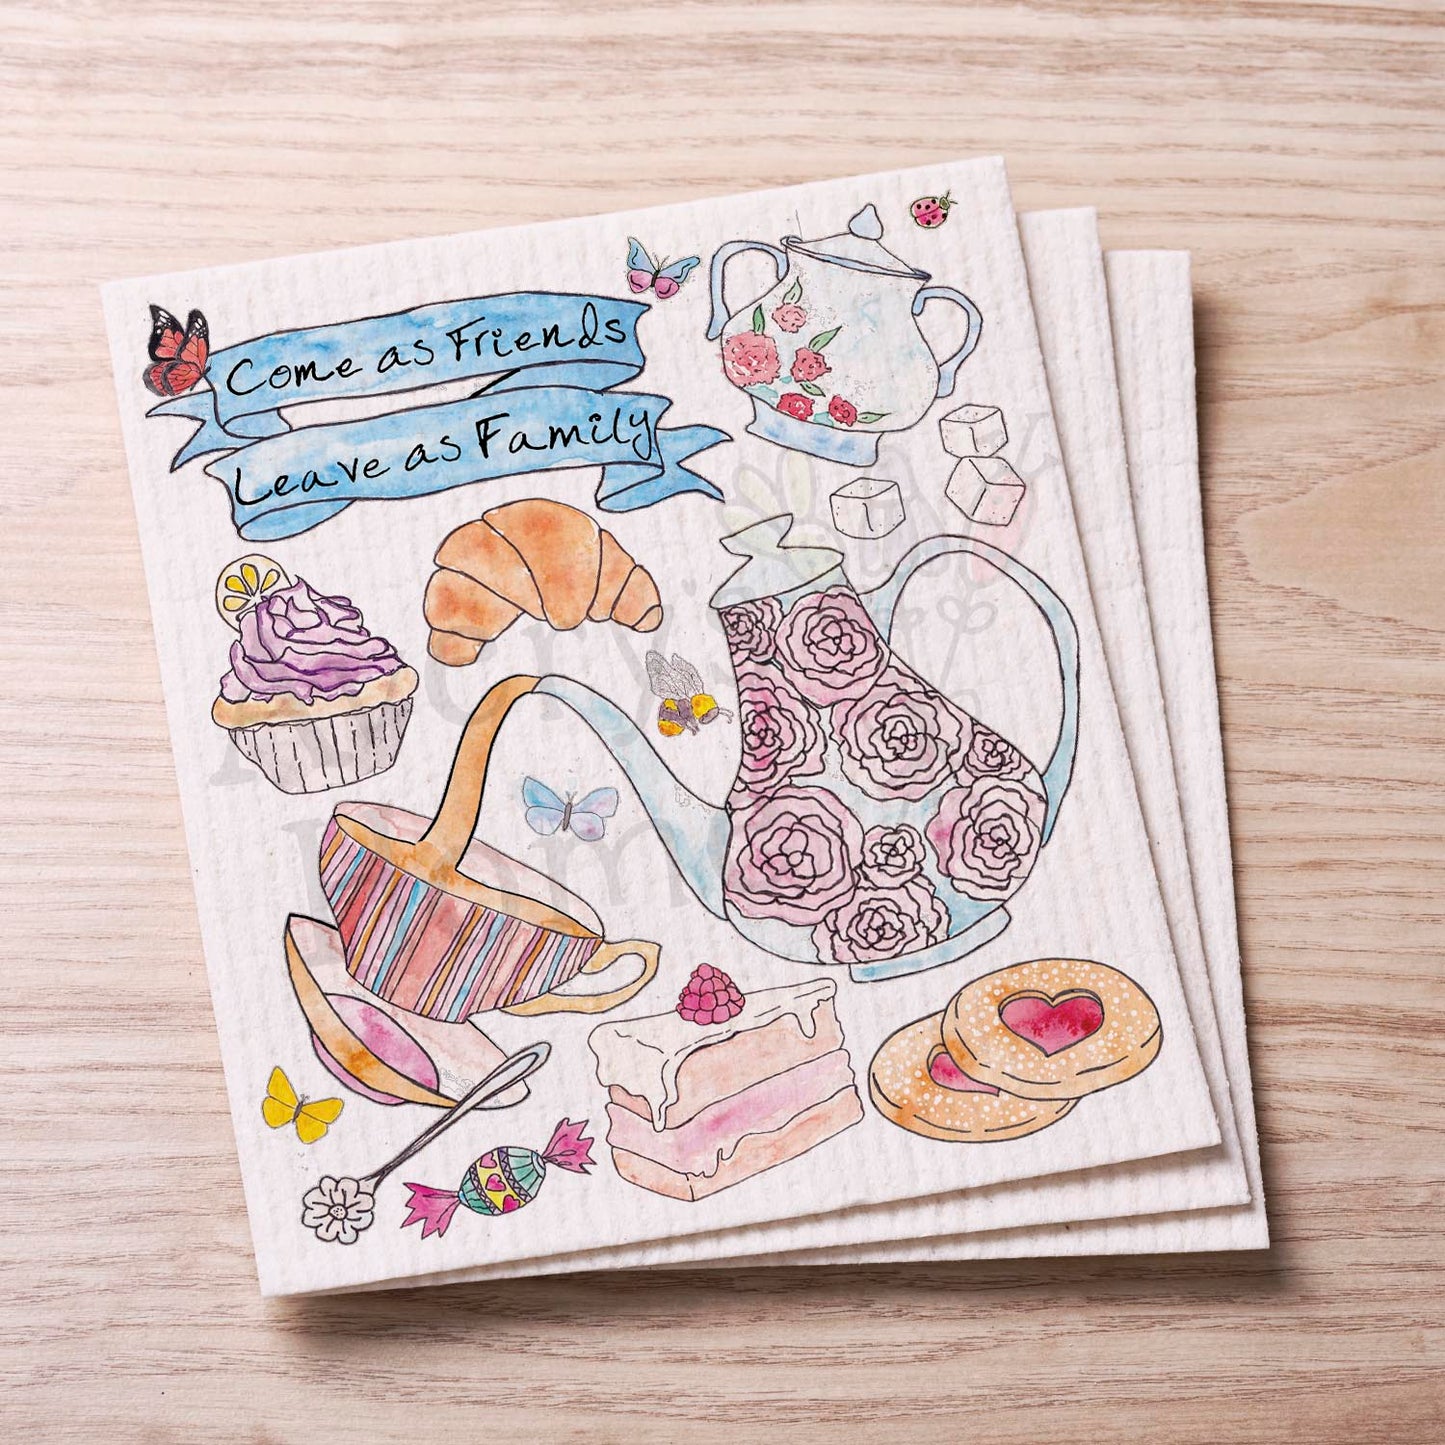 Come as Friends
Leave as Family